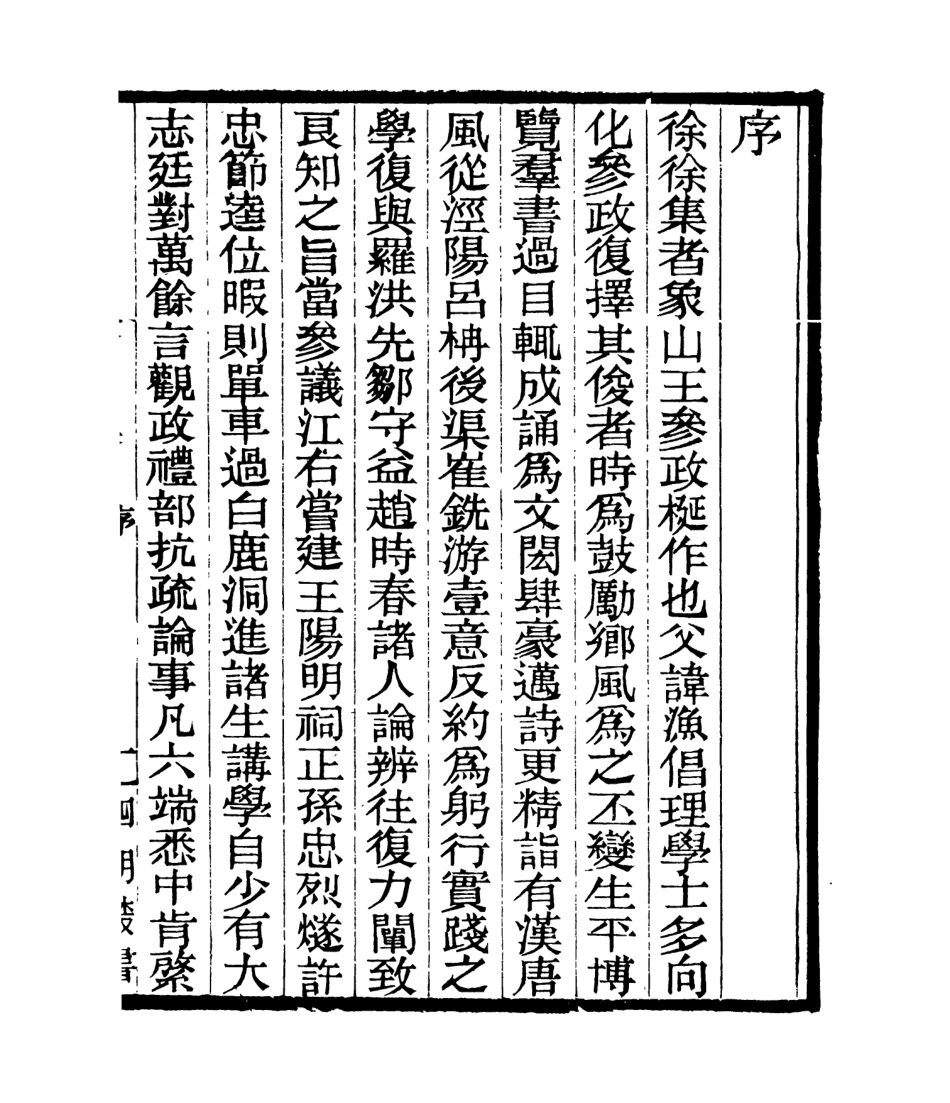 序
徐徐集者象山王參政梴作也父諱漁倡理學士多向
化參政復擇其俊者時爲鼓勵鄉風爲之丕變生平博
覽羣書過目輒成誦爲文閎肆豪邁詩更精詣有漢唐
風從涇陽呂柟後渠崔銑游壹意反約爲躬行實踐之
學復與羅洪先鄒守益趙時春諸人論辨往復力闡致
良知之旨當參議江右嘗建王陽明祠正孫忠烈燧許
忠節逵位暇則單車過白鹿洞進諸生講學自少有大
志廷對萬餘言觀政禮部抗疏論事凡六端悉中肯綮
序
四明叢書